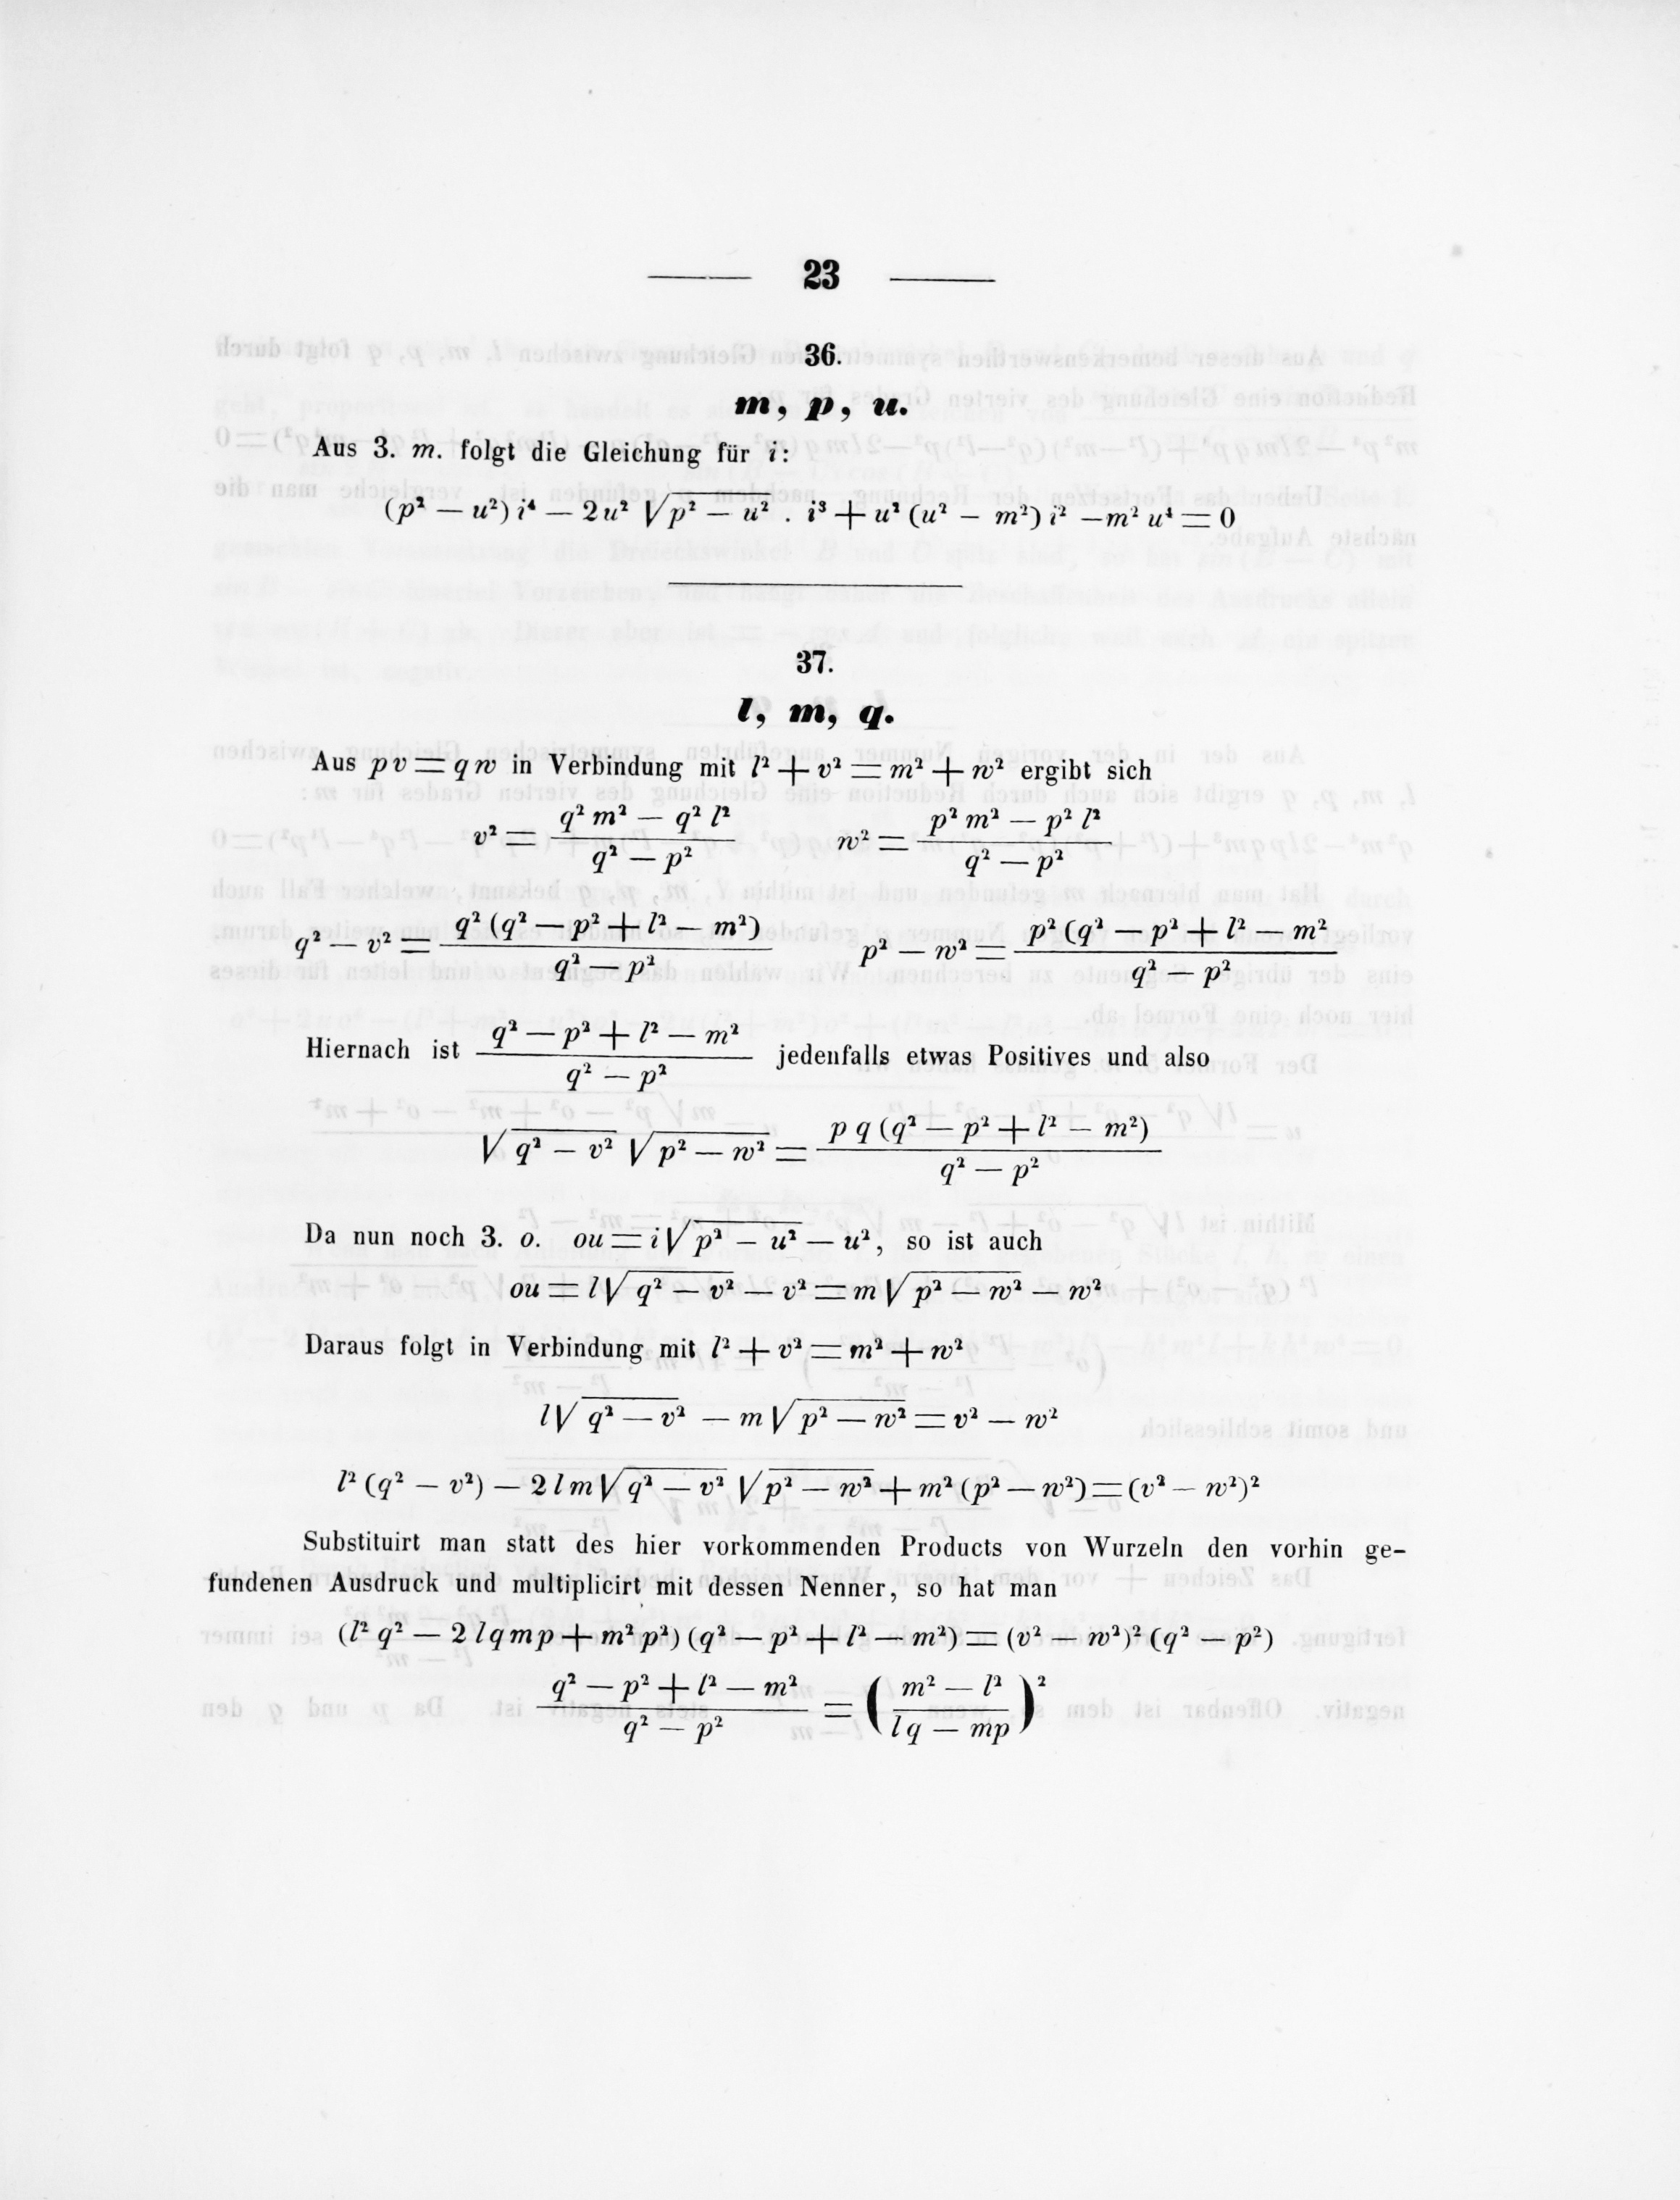 23
36.
m, p, u.
Aus 3. m. folgt die Gleichung für i:
(p² — u²) i⁴ — 2 u² √(p² — u²) . i³ + u² (u² — m²) i² — m² u⁴ = 0
37.
l, m, q.
Aus p v = q w in Verbindung mit l² + v² = m² + w² ergibt sich
v² = (q² m² — q² l²) / (q² — p²) w² = (p² m² — p² l²) / (q² — p²)
q² — v² = q² (q² — p² + l² — m²) / (q² — p²) p² — w² = p² (q² — p² + l² — m² / (q² — p²)
Hiernach ist (q² — p² + l² — m²) / (q² — p²) jedenfalls etwas Positives und also
√(q² — v²) √(p² — w²) = p q (q² — p² + l² — m²) / (q² — p²)
Da nun noch 3. o. ou = i √(p² — u²) — u², so ist auch
ou = l √(q² — v²) — v² = m √(p² — w²) — w²
Daraus folgt in Verbindung mit l² + v² = m² + w²
l √(q² — v²) — m √(p² — w²) = v² — w²
l² (q² — v²) — 2 l m √(q² — v²) √(p² — w²) + m² (p² — w²) = (v² — w²)²
Substituirt man statt des hier vorkommenden Products von Wurzeln den vorhin ge-
fundenen Ausdruck und multiplicirt mit dessen Nenner, so hat man
(l² q² — 2 l q m p + m² p²) (q² — p² + l² — m²) = (v² — w²)² (q² — p²)
(q² — p² + l² — m²) / (q² — p²) = ((m² — l²) / (l q — mp))²